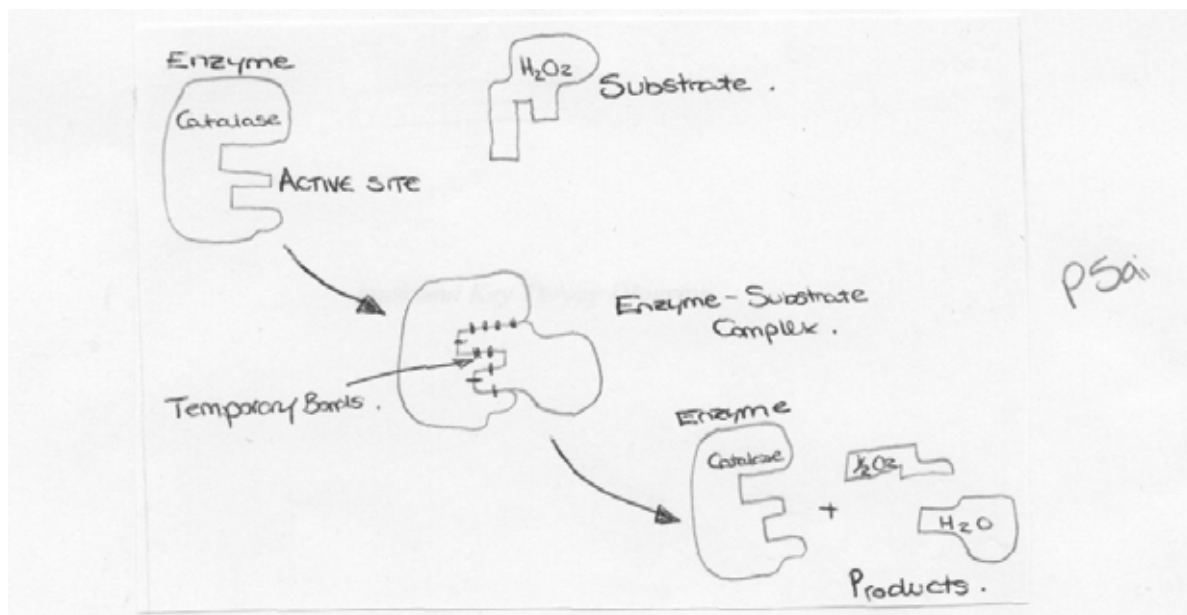 Enzyme
Catalase
ACTIVE SITE
H2O2
Substrate.
Enzyme-Substrate
Complex.
Temporary Bonds.
Enzyme
Catalase
+
½O2
H2O
Products.